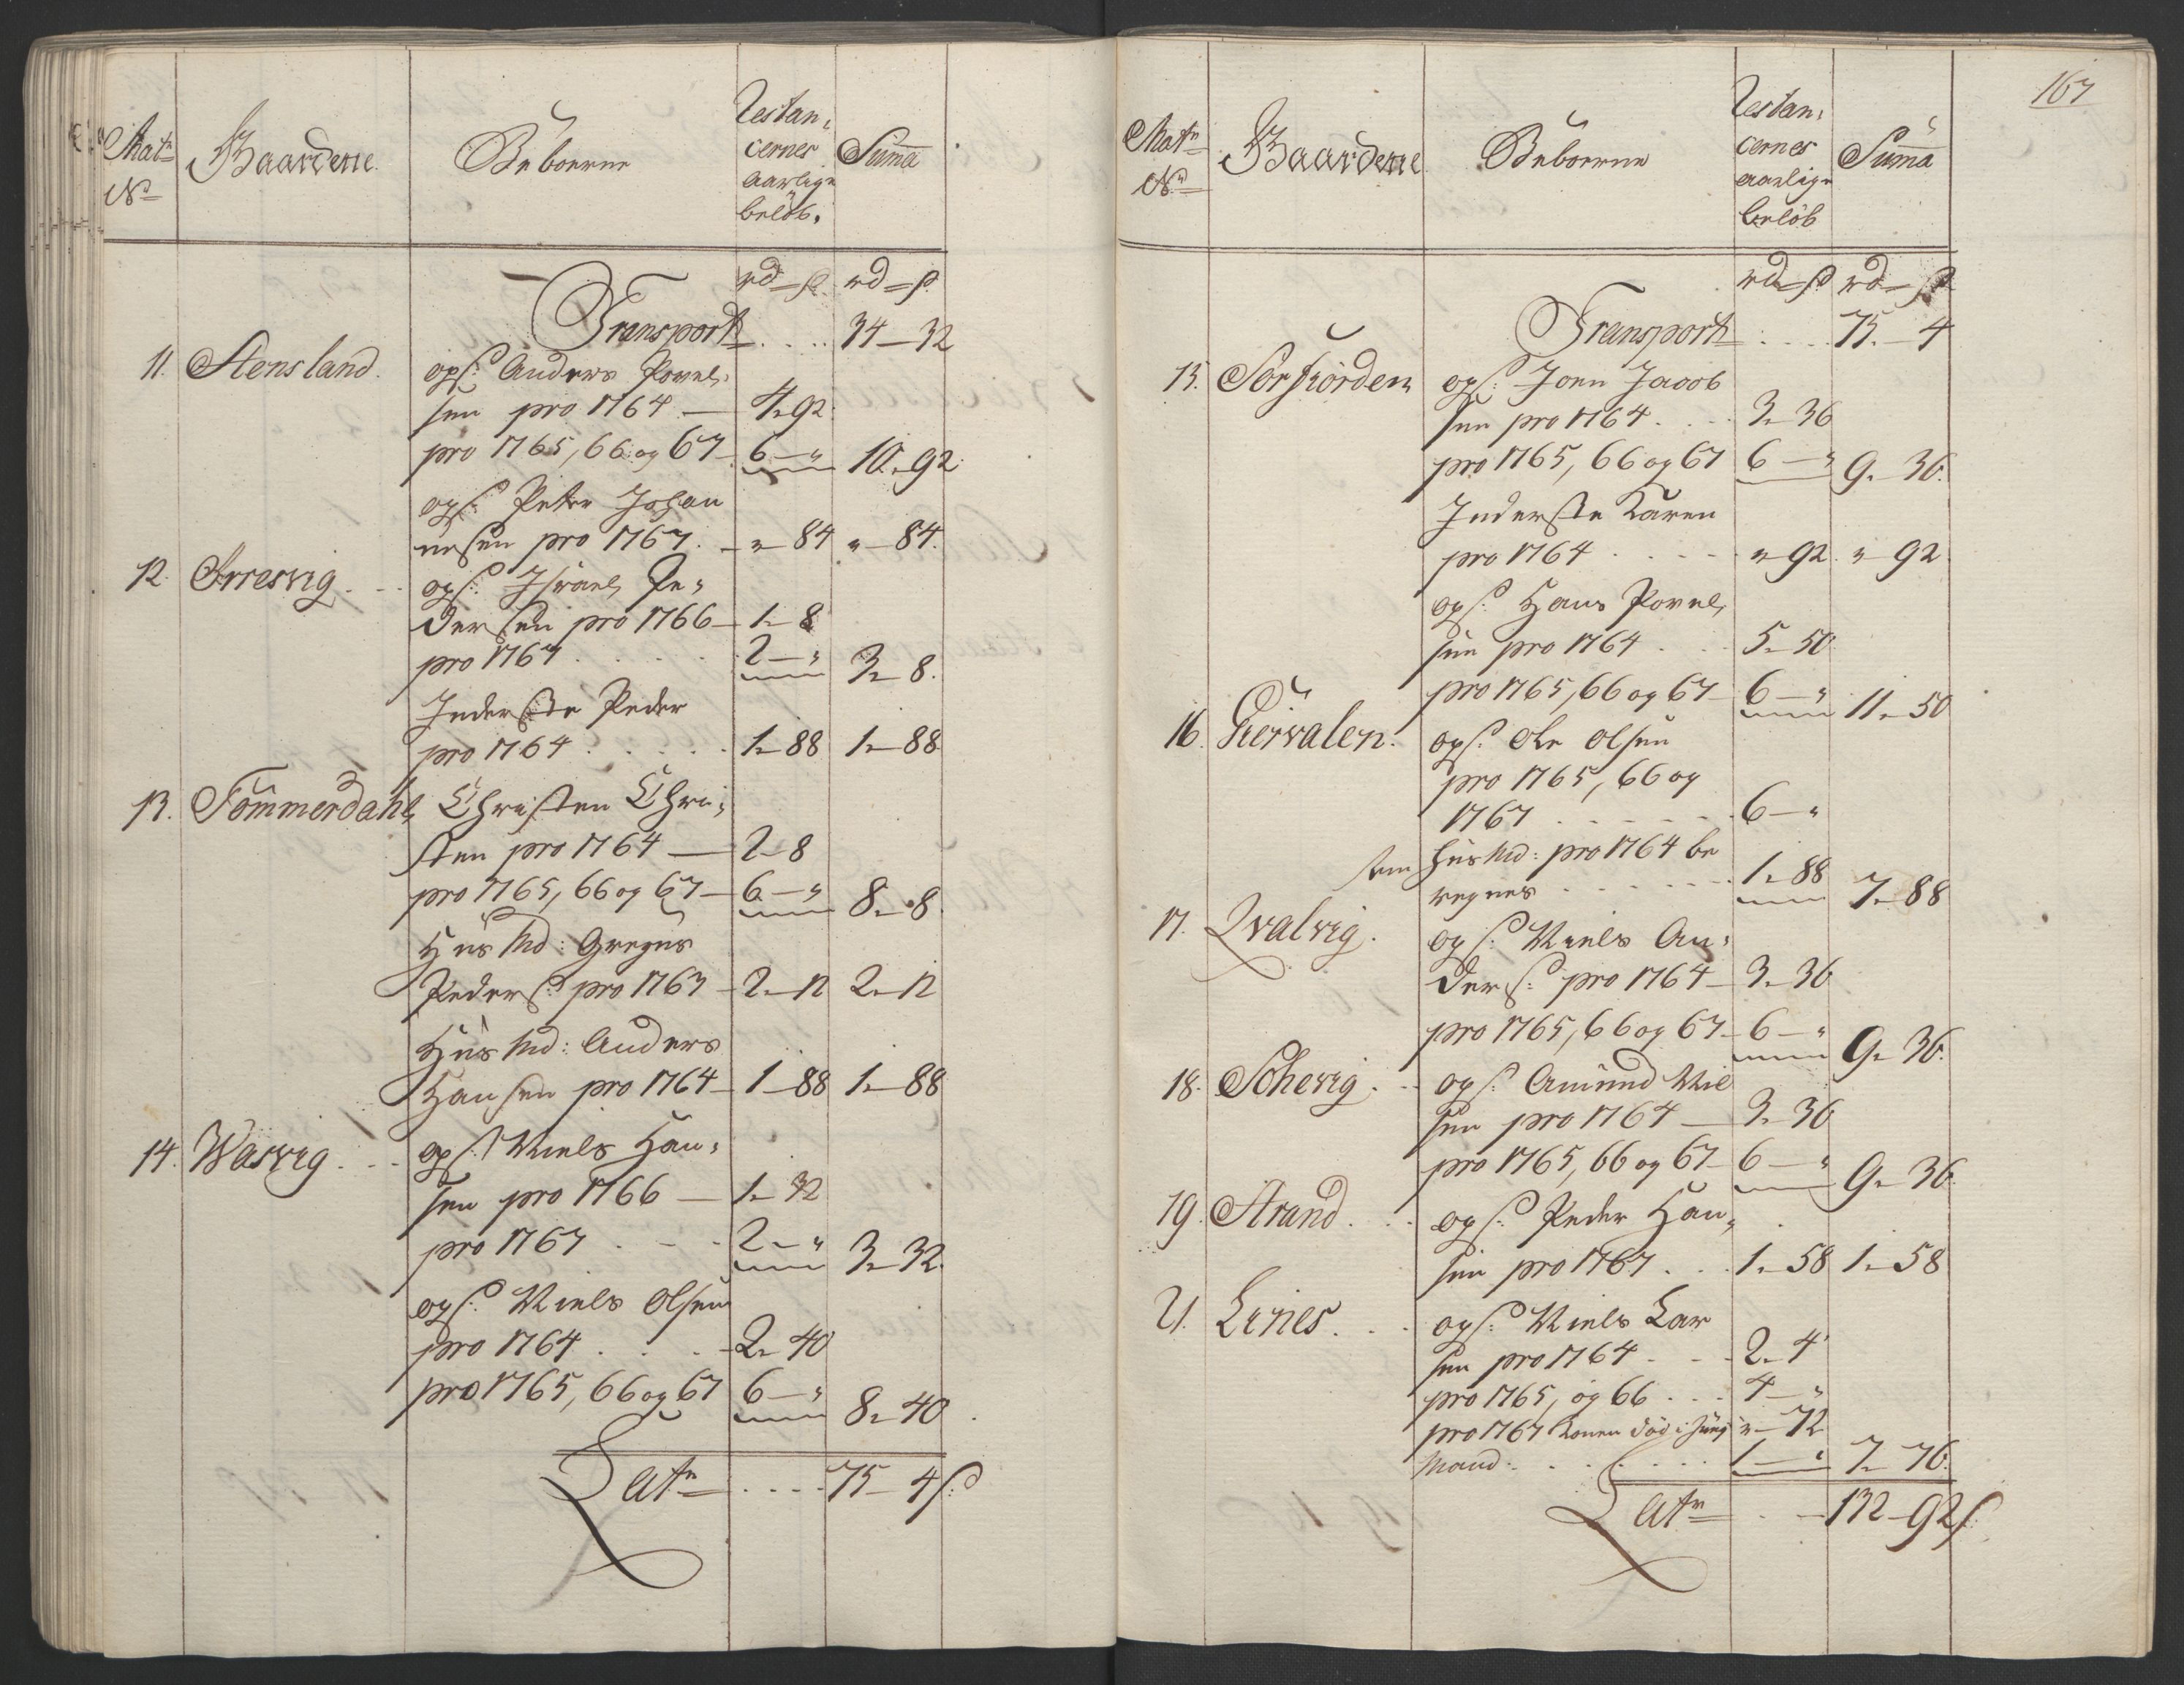 Matr
No
Gaardene
Beboerne
Restan,
cernes
aarlige
beløb.
Suma
rd – s. rd – s.
Transport . . . . 34 – 32
11. Stensland. ops: Anders Povel,
sen pro 1764 — 4 – 92.
pro 1765, 66 og 67 – 6 – " 10 – 92.
ops: Peter Johan
nesen pro 1767. – " – 84 " – 84.
12. Srresvig . . . ops: Israel Pe,
dersen pro 1766 – 1 – 8
pro 1767 . . . . . 2 – " 3 – 8.
Inderste Peder
pro 1764 . . . . . 1 – 88 1 – 88.
13. Tömmerdahl, Christen Chri,
sten pro 1764 — 2 – 8
pro 1765, 66 og 67 – 6 – " 8 – 8.
Huusmd: Gregus
Peders: pro 1767 – 2 – 12 2 – 12
Huusmd: Anders
Hansen pro 1764 – 1 – 88 1 – 88
14. Wasvig . . . ops: Niels Han,
sen pro 1766 — 1 – 32
pro 1767 . – – 2 – " 3 – 32.
ops: Niels Olsen
pro 1764 . . . – 2 – 40
pro 1765, 66 og 67 6 – " 8 – 40.
Latr . . . . 75 – 4 s:
167
Matr
No
Gaardene
Beboerne
Restan,
cernes
aarlige
beløb
Suma
rd – s rd – s
Transport . . . . 75. – 4
15. Sörfiörden ops: Joen Jacob
sen pro 1764 . . . 3 – 36
pro 1765, 66 og 67 6 – " 9 – 36.
Inderste Karen
pro 1764 . . . . " 92. " – 92.
ops: Hans Povel,
sen pro 1764 . . . 5 – 50.
pro 1765, 66 og 67 – 6 – " 11 – 50
16. Giervalen. ops: Ole Olsen
pro 1765, 66 og
1767 . . . . . . . 6 – "
som huusmd: pro 1764 be
regnes . . . . . . 1 – 88 7 – 88
17. Qvalvig. ops: Niels An,
ders: pro 1764 – 3 – 36
pro 1765, 66 og 67 – 6 – " 9 – 36.
18. Schevig . . . ops: Amund Niel
sen pro 1764 — 3 – 36
pro 1765, 66 og 67 – 6 – " 9 – 36.
19. Strand . . . ops: Peder Han,
sen pro 1767 . . . 1 – 58 1 – 58
21. Leines . . . ops: Niels Lar
sen pro 1764 . – – 2 – 4
pro 1765, og 66 . . . 4 – "
pro 1767 konen död i Junij " – 72
Mand . . . . . . . 1 – " 7 – 76.
Latr . . – 132 – 92 s: